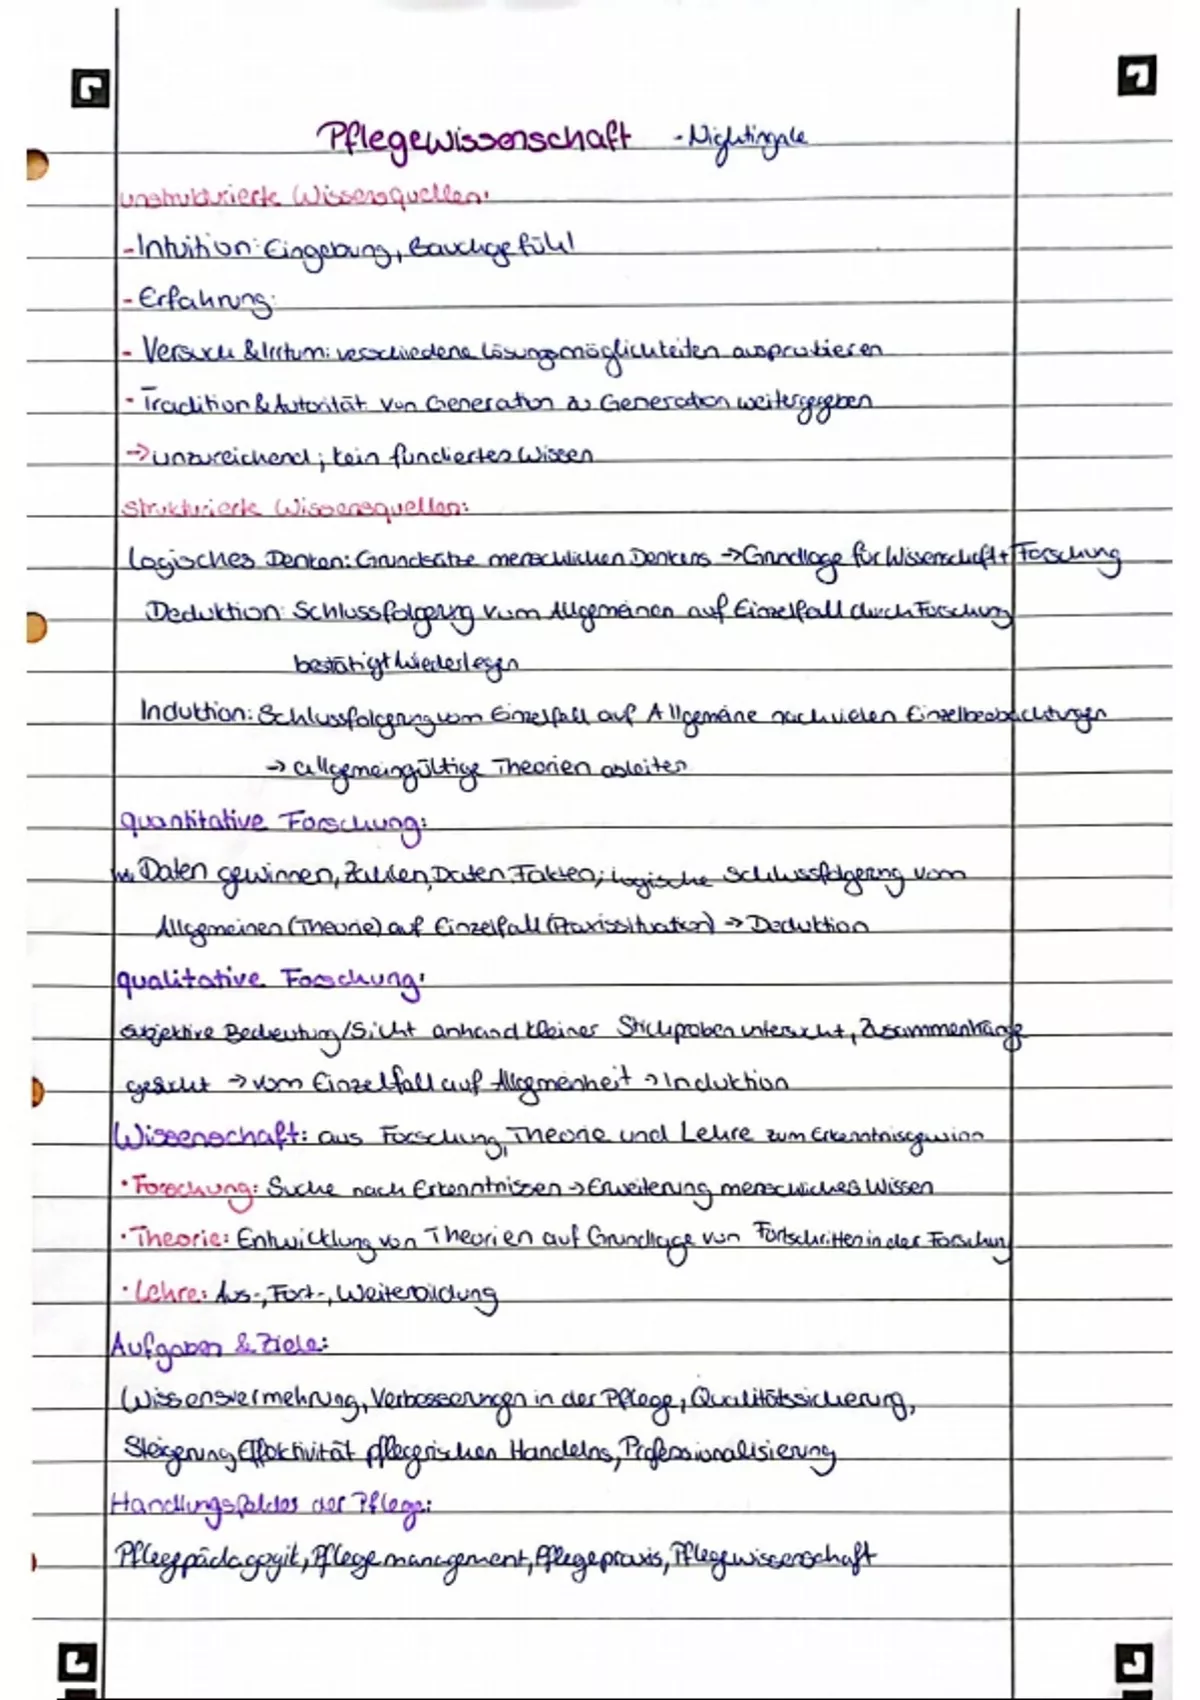 Pflegewissenschaft - Nightingale
unstrukturierte Wissensquellen:
- Intuition: Eingebung, Bauchgefühl
- Erfahrung:
- Versuch & Irrtum: verschiedene Lösungsmöglichkeiten ausprobieren
- Tradition & Autorität von Generation zu Generation weitergegeben
→ unzureichend; kein fundiertes Wissen
strukturierte Wissensquellen:
logisches Denken: Grundsätze menschlichen Denkens → Grundlage für Wissenschaft + Forschung
Deduktion: Schlussfolgerung vom Allgemeinen auf Einzelfall durch Forschung
bestätigt/wiederlegen
Induktion: Schlussfolgerung vom Einzelfall auf Allgemeine nach vielen Einzelbeobachtungen
→ allgemeingültige Theorien ableiten
quantitative Forschung:
Daten gewinnen, Zahlen, Daten, Fakten; logische Schlussfolgerung vom
Allgemeinen (Theorie) auf Einzelfall (Praxissituation) → Deduktion
qualitative Forschung:
subjektive Bedeutung/Sicht anhand kleiner Stichproben untersucht, Zusammenhänge
gesucht → vom Einzelfall auf Allgemeinheit → Induktion
Wissenschaft: aus Forschung, Theorie und Lehre zum Erkenntnisgewinn
• Forschung: Suche nach Erkenntnissen → Erweiterung menschliches Wissen
• Theorie: Entwicklung von Theorien auf Grundlage von Fortschritten in der Forschung
• Lehre: Aus-, Fort-, Weiterbildung
Aufgaben & Ziele:
Wissensvermehrung, Verbesserungen in der Pflege, Qualitätssicherung,
Steigerung Effektivität pflegerischen Handelns, Professionalisierung
Handlungsfelder der Pflege:
Pflegepädagogik, Pflegemanagement, Pflegepraxis, Pflegewissenschaft